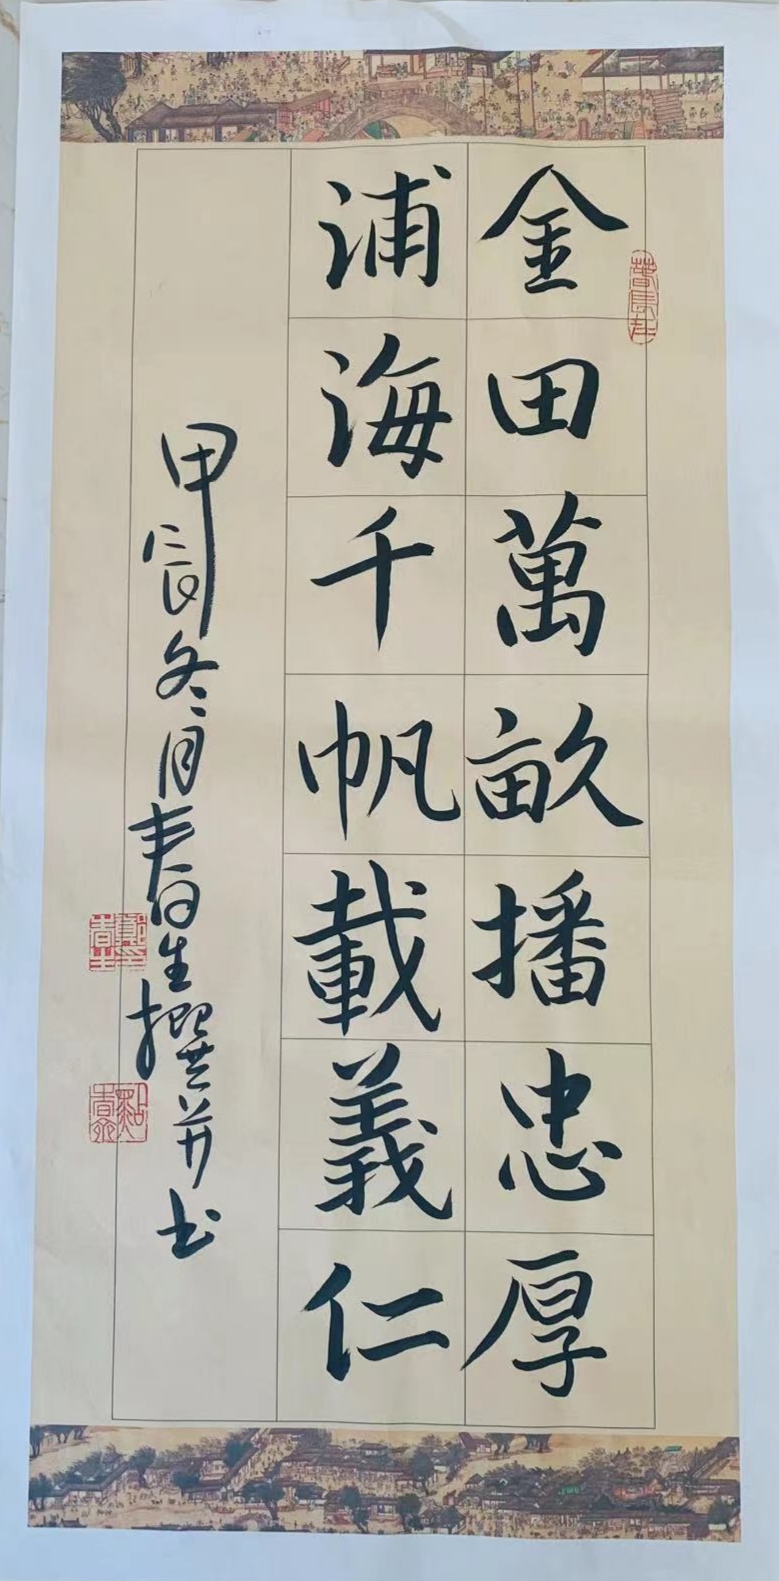 金田萬畝播忠厚
浦海千帆載義仁
甲辰冬月春生撰并书